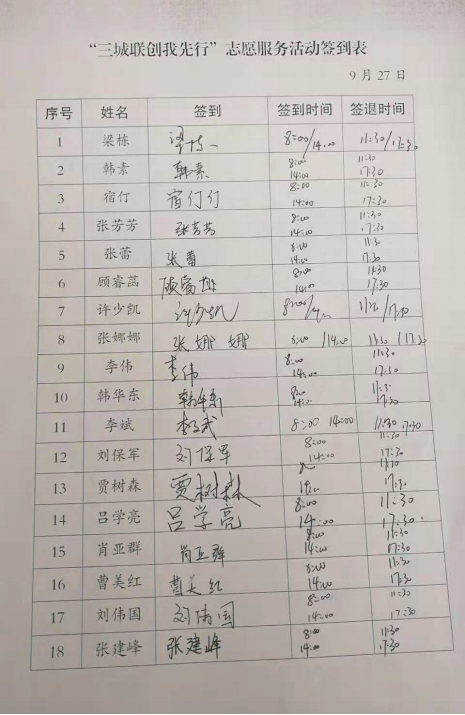 “三城联创我先行”志愿服务活动签到表
9月27日
序号 姓名 签到 签到时间 签退时间
1 梁栋 梁栋 8:00/14:00 11:30/17:30
2 韩素 韩素 8:00 14:00 11:30 17:30
3 宿仃 宿仃仃 8:00 14:00 11:30 17:30
4 张芳芳 张芳芳 8:00 14:00 11:30 17:30
5 张蕾 张蕾 8:00 14:00 11:30 17:30
6 顾睿菡 8:00 14:00 11:30 17:30
7 许少凯 许少凯 8:00/14:00 11:30/17:30
8 张娜娜 张娜娜 8:00/14:00 11:30/17:30
9 李伟 李伟 8:00 14:00 11:30 17:30
10 韩华东 韩华东 8:00 14:00 11:30 17:30
11 李斌 李斌 8:00 14:00 11:30 17:30
12 刘保军 刘保军 8:00 14:00 11:30 17:30
13 贾树森 贾树森 8:00 14:00 11:30 17:30
14 吕学亮 吕学亮 8:00 14:00 11:30 17:30
15 肖亚群 肖亚群 8:00 14:00 11:30 17:30
16 曹美红 曹美红 8:00 14:00 11:30 17:30
17 刘伟国 刘伟国 8:00 14:00 11:30 17:30
18 张建峰 张建峰 8:00 14:00 11:30 17:30